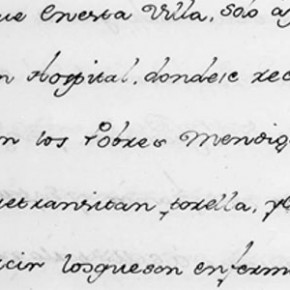 ue enesta Villa, solo a
n Hospital, donde se rec
n los Pobres Mendig
etransitan, porella, y
cir losqueson enferm